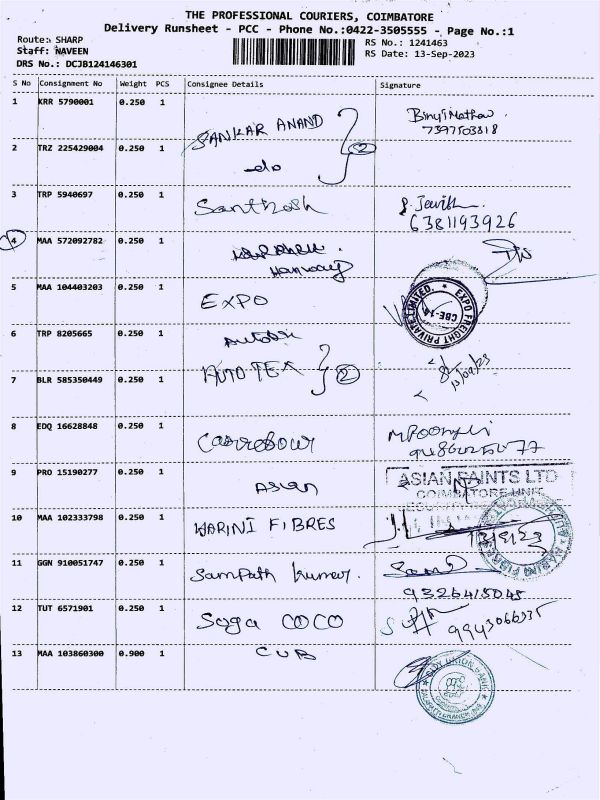 THE PROFESSIONAL COURIERS, COIMBATORE
Delivery Runsheet - PCC - Phone No.:0422-3505555 - Page No.:1
Route: SHARP
Staff: NAVEEN
DRS No.: DCJB124146301
RS No.: 1241463
RS Date: 13-Sep-2023
S No Consignment No Weight PCS Consignee Details Signature
1 KRR 5790001 0.250 1 SANKAR ANAND Binyi Mathew
7397503818
2 TRZ 225429004 0.250 1 -do 2
3 TRP 5940697 0.250 1 Santhosh
6381193926
4 MAA 572092782 0.250 1
5 MAA 104403203 0.250 1 EXPO
EXPO FREIGHT PRIVATE LIMITED. CBE-14
6 TRP 8205665 0.250 1
7 BLR 585350449 0.250 1 AUTO TEX 2
13/09/23
8 EDQ 16628848 0.250 1 Carrebour
9 PRO 15190277 0.250 1 ASIAN
ASIAN PAINTS LTD
COIMBATORE UNIT
10 MAA 102333798 0.250 1 HARINI FIBRES
13/9/23
HARINI FIBRES
11 GGN 910051747 0.250 1 Sampath kumar.
9326415045
12 TUT 6571901 0.250 1 Saga COCO
9943066335
13 MAA 103860300 0.900 1 CUB
CITY UNION BANK